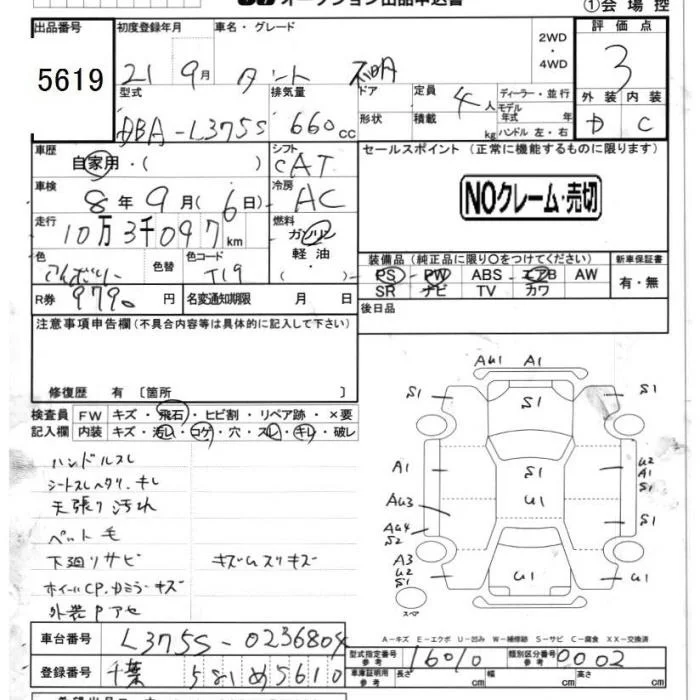 オークション出品申込書
①会場控
出品番号 初度登録年月 車名・グレード 評価点
5619
21 9月 タント 不明 2WD・4WD 3
型式 排気量 ドア 定員 4人 ディーラー・並行 外装 内装
DBA-L375S 660cc 形状 積載 kg モデル年式 年 ハンドル 左・右 D C
車歴 自家用・( ) シフト CAT セールスポイント(正常に機能するものに限ります)
車検 8年9月(6日) 冷房 AC
NOクレーム・売切
走行 10万3千097km 燃料 ガソリン・軽油・( )
色 色替 色コード T19
装備品(純正品に限り○をつけてください) 新車保証書
PS PW ABS エアB AW 有・無
SR ナビ TV カワ
R券 9790円 名変通知期限 月 日 後日品
注意事項申告欄(不具合内容等は具体的に記入して下さい)
修復歴 有〔箇所 〕
検査員 FW キズ・飛石・ヒビ割・リペア跡・×要
記入欄 内装 キズ・汚れ・コゲ・穴・スレ・キレ・破レ
ハンドルスレ
シートスレヘタリ.キレ
天張り汚れ
ペット毛
下廻りサビ キズムスリキズ
ホイールCP.Dミラーキズ
外装Pアセ
AU1 A1
S1 S1 S1
A1 S1 U2 A1 S1
AU3 U1 S1
AU4 S2
A3 U2 S1 U1 U1
スペア
A-キズ E-エクボ U-凹み W-補修跡 S-サビ C-腐食 XX-交換済
車台番号 L375S-0236804
型式指定番号 参考 16010 類別区分番号 参考 0002
登録番号 千葉 581 め 5610
車庫証明用 参考 長さ cm 幅 cm 高さ cm